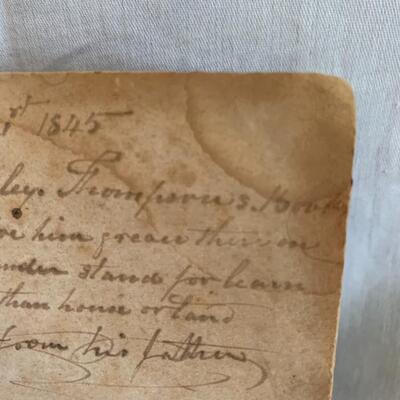 rst 1845
ley Thompson's Book
ve him greace there on
under stand for learn
than house or land
from his father